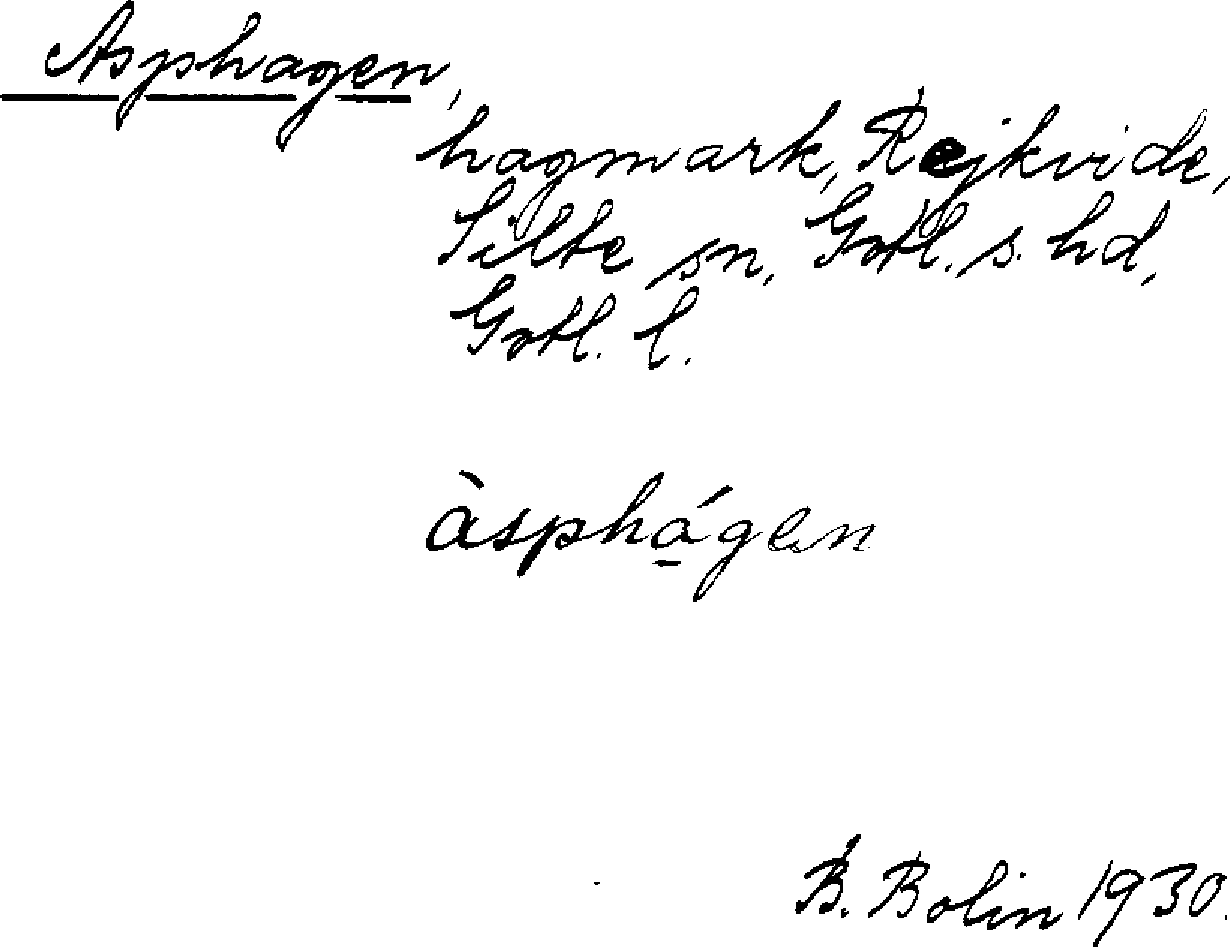 Asphagen,
hagmark, Rejkvide,
Silte sn, Gotl. s. hd,
Gotl. l.
àsphá̱gen
B. Bolin 1930.